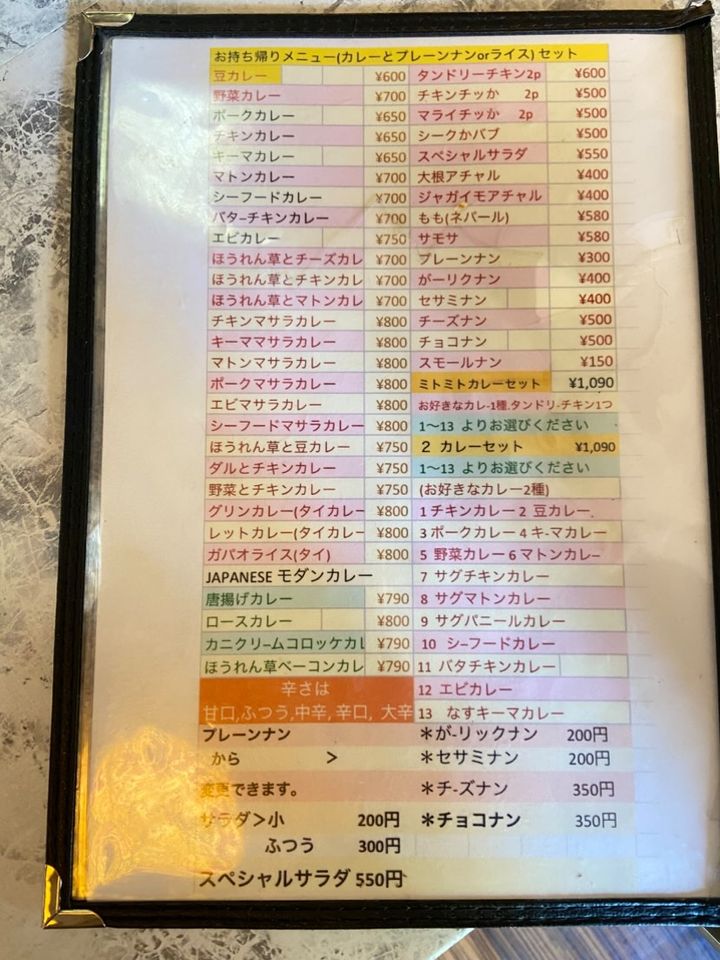 お持ち帰りメニュー(カレーとプレーンナンorライス) セット
豆カレー ¥600
野菜カレー ¥700
ポークカレー ¥650
チキンカレー ¥650
キーマカレー ¥650
マトンカレー ¥700
シーフードカレー ¥700
バタ–チキンカレー ¥700
エビカレー ¥750
ほうれん草とチーズカレ ¥700
ほうれん草とチキンカレ ¥700
ほうれん草とマトンカレ ¥700
チキンマサラカレー ¥800
キーママサラカレー ¥800
マトンマサラカレー ¥800
ポークマサラカレー ¥800
エビマサラカレー ¥800
シーフードマサラカレー ¥800
ほうれん草と豆カレー ¥750
ダルとチキンカレー ¥750
野菜とチキンカレー ¥750
グリンカレー(タイカレー ¥800
レットカレー(タイカレー ¥800
ガパオライス(タイ) ¥800
JAPANESE モダンカレー
唐揚げカレー ¥790
ロースカレー ¥800
カニクリームコロッケカレ ¥790
ほうれん草ベーコンカレ ¥790
辛さは
甘口,ふつう,中辛, 辛口, 大辛
タンドリーチキン2p ¥600
チキンチッか 2p ¥500
マライチッか 2p ¥500
シークかバブ ¥500
スペシャルサラダ ¥550
大根アチャル ¥400
ジャガイモアチャル ¥400
もも(ネパール) ¥580
サモサ ¥580
プレーンナン ¥300
がーリクナン ¥400
セサミナン ¥400
チーズナン ¥500
チョコナン ¥500
スモールナン ¥150
ミトミトカレーセット ¥1,090
お好きなカレ-1種.タンドリ-チキン1つ
1～13 よりお選びください
2 カレーセット ¥1,090
1～13 よりお選びください
(お好きなカレー2種)
1 チキンカレー 2 豆カレー
3 ポークカレー 4 キ-マカレー
5 野菜カレー 6 マトンカレ–
7 サグチキンカレー
8 サグマトンカレー
9 サグパニールカレー
10 シ–フードカレー
11 バタチキンカレー
12 エビカレー
13 なすキーマカレー
プレーンナン
から >
変更できます。
サラダ＞小 200円
ふつう 300円
スペシャルサラダ 550円
＊が-リックナン 200円
＊セサミナン 200円
＊チ-ズナン 350円
＊チョコナン 350円